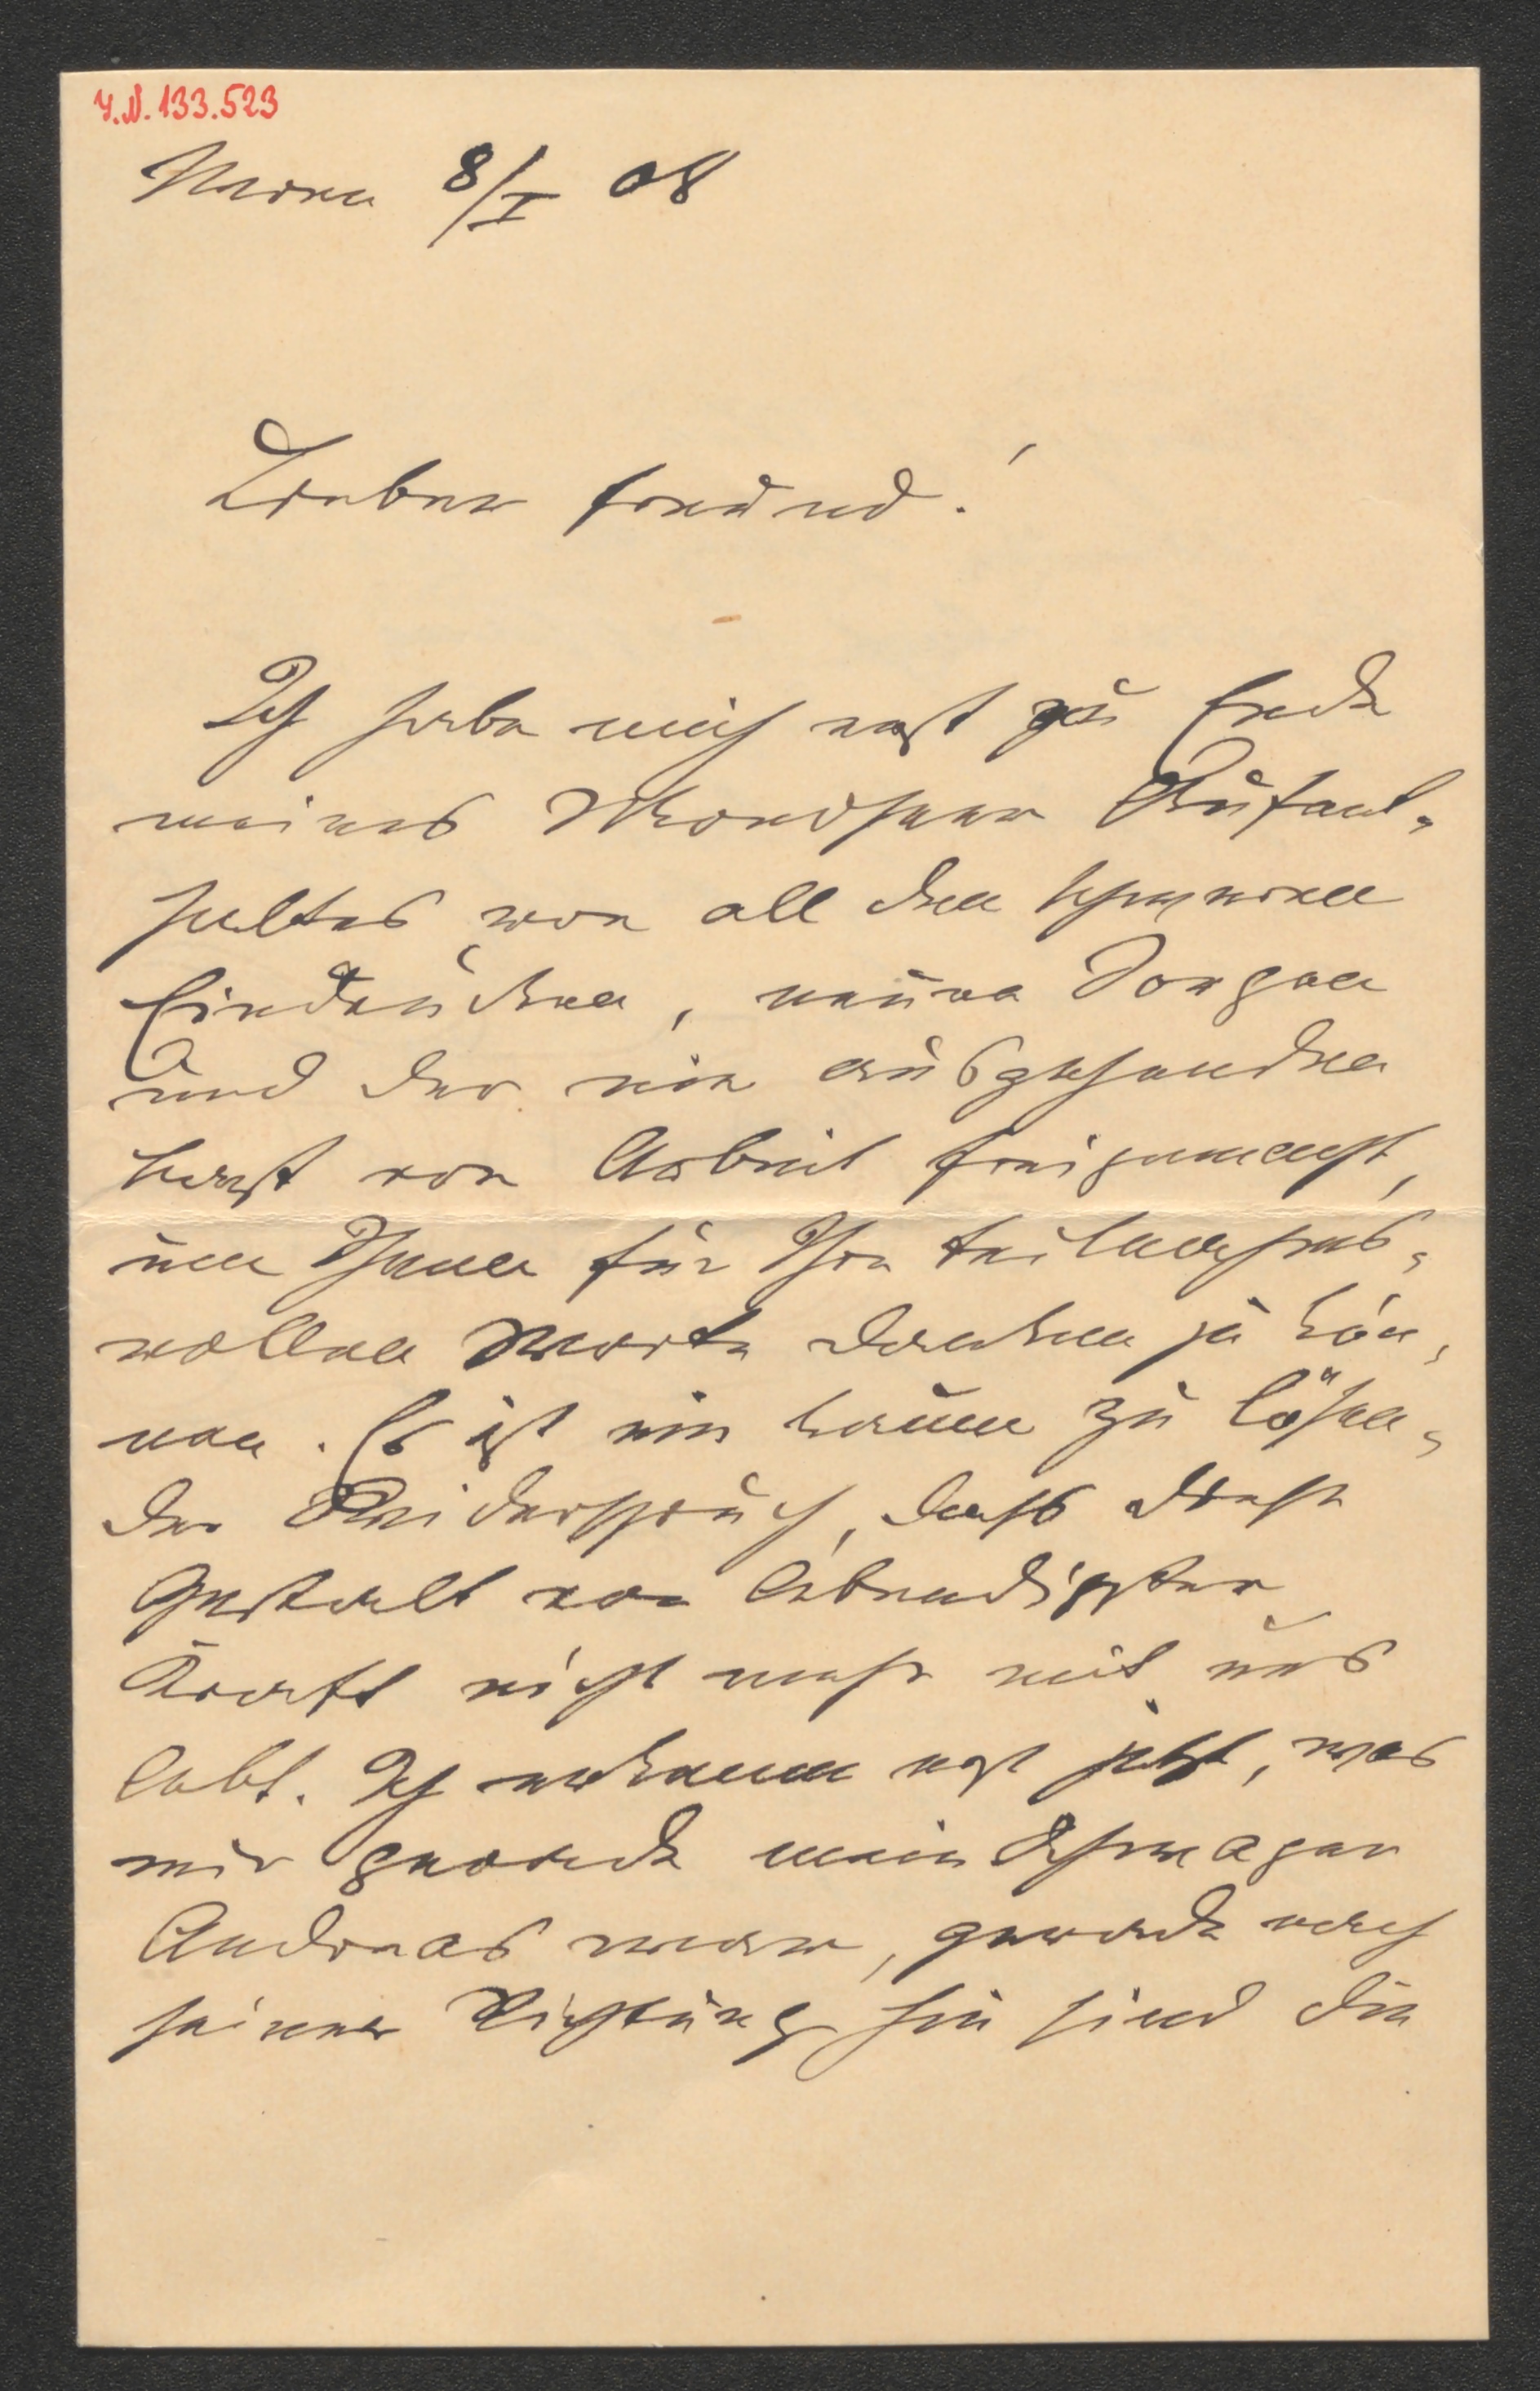 I.N. 133.523
Wien 8/I 08
Lieber Freund!
Ich habe mich erst zu Ende
meines Mondseer Aufent-
haltes von all den schweren
Eindrücken, neuen Sorgen
und der nie ausgehenden
Last von Arbeit freigemacht,
um Ihnen für Ihre teilnahms-
vollen Worte danken zu kön-
nen. Es ist ein kaum zu lösen-
der Widerspruch, dass diese
Gestalt von lebendigster
Kraft nicht mehr mit uns
lebt. Ich erkenne erst jetzt, was
mir gerade mein Schwager
Andreas war, gerade nach
seiner Richtung hin sind die